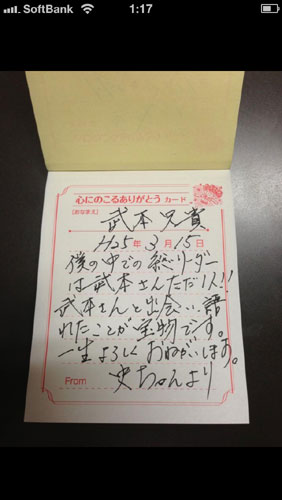 SoftBank 1:17
心にのこるありがとうカード
【おなまえ】 武本兄貴
H25年3月15日
僕の中での総リーダー
は武本さんただ1人!!
武本さんと出会い、語
れたことが宝物です。
一生よろしくおねがいします。
From 史ちゃんより